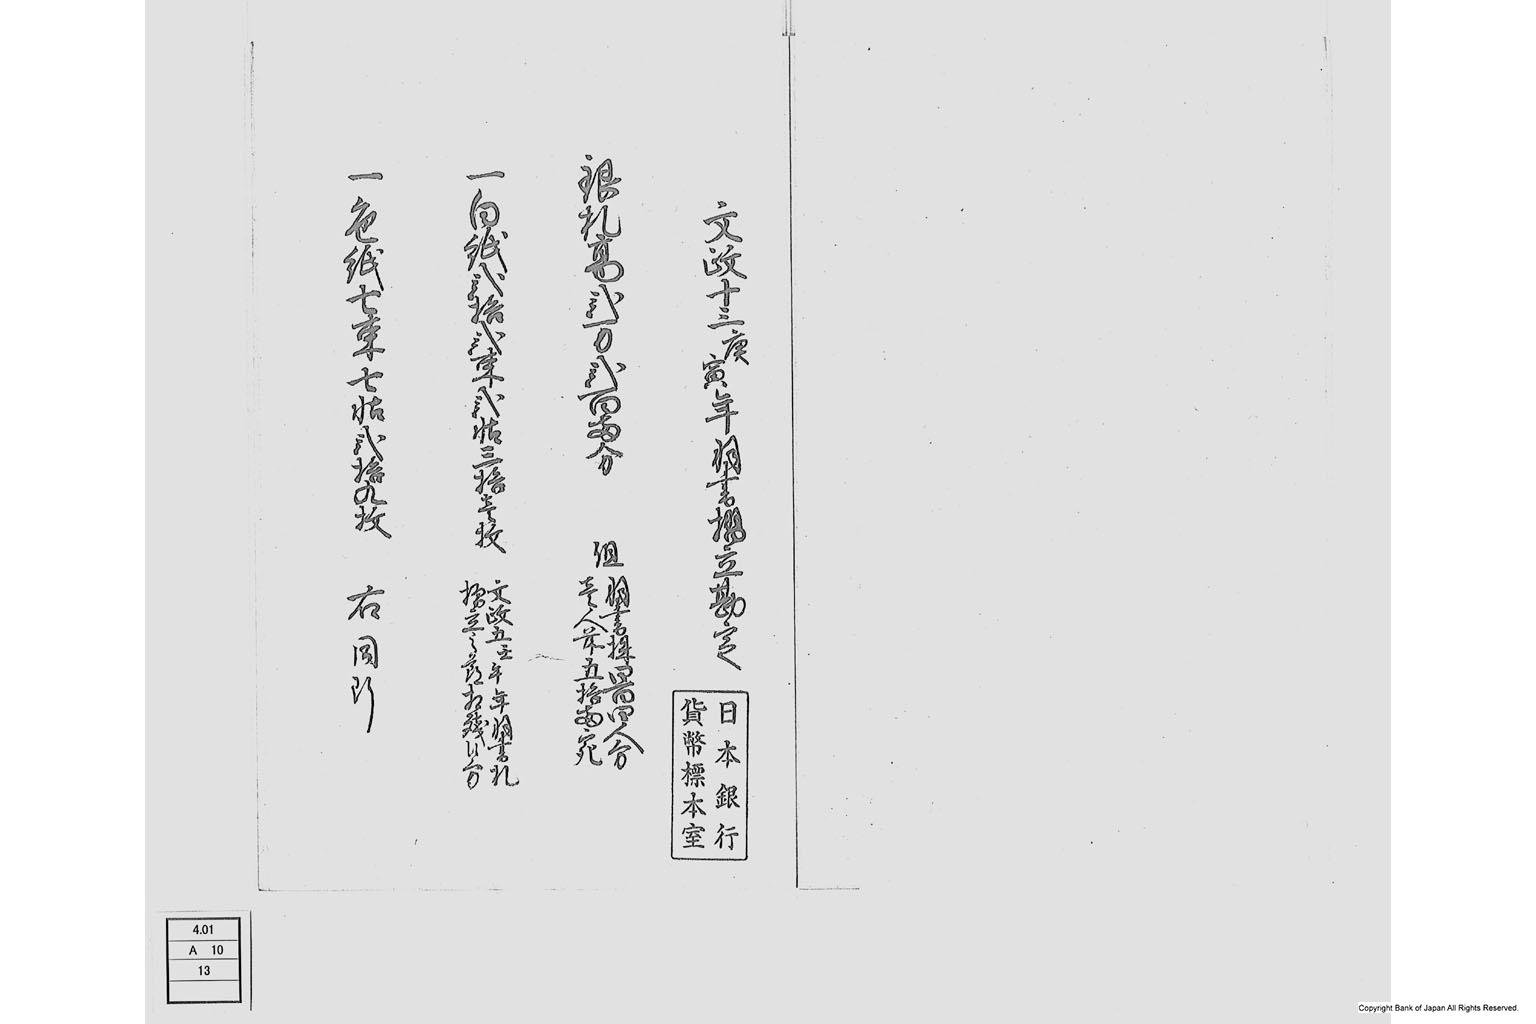 文政十三庚寅年羽書摺立勘定
日本銀行
貨幣標本室
銀札高弐万弐百両分
但
羽書株四百四人分
壱人前五拾両宛
一白紙弐拾弐束弐帖三拾壱枚
文政五壬午年羽書札
摺立之節相残候分
一色紙七束七帖弐拾九枚
右同断
4.01
A 10
13
Copyright Bank of Japan All Rights Reserved.